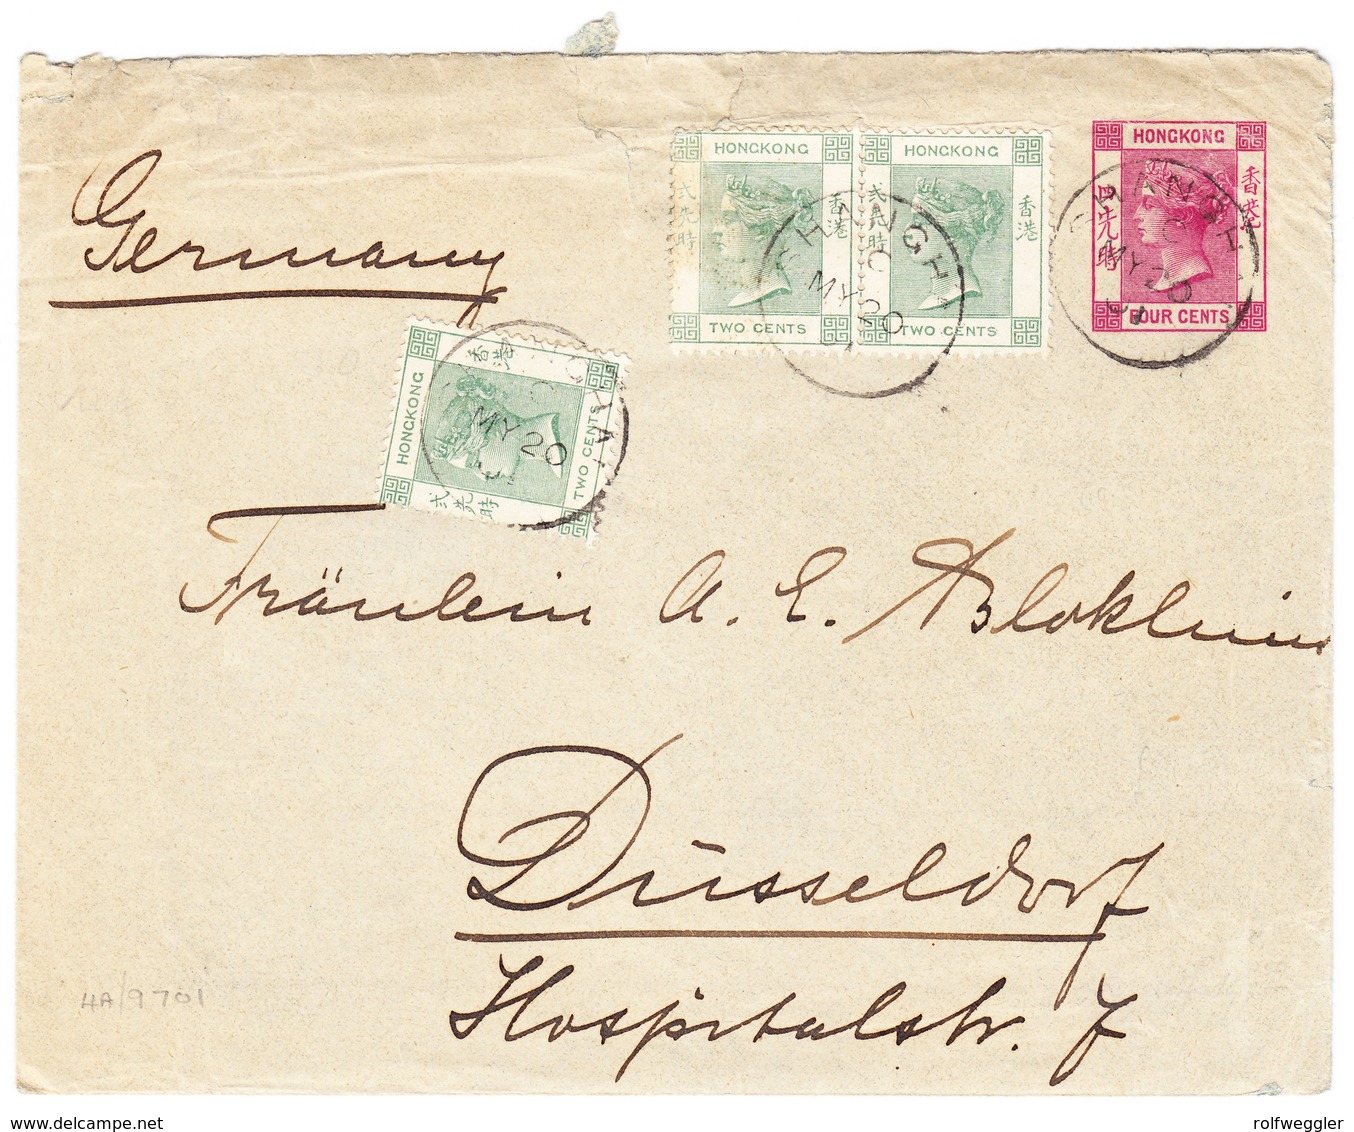 HONGKONG
香港
四先時
FOUR CENTS
HONGKONG
香港
弍先時
TWO CENTS
HONGKONG
香港
弍先時
TWO CENTS
SHANGHAI
C
MY 20
01
SHANGHAI
C
MY 20
Germany
HONGKONG
香港
弍先時
TWO CENTS
MY 20
01
Fräulein A. E.
Düsseldorf
Hospitalstr. 7
4A/9701
rolfweggler